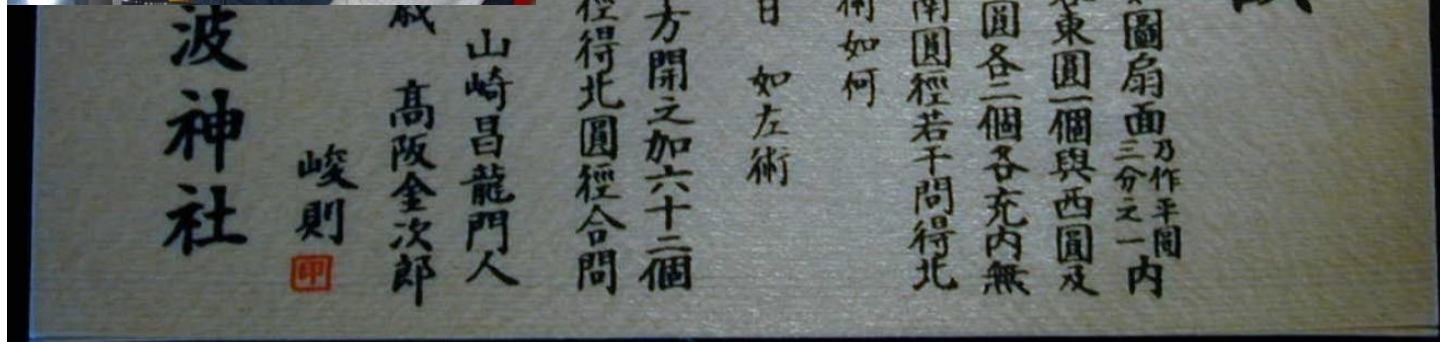 圖扇面乃作平圓三分之一内
東圓一個與西圓及
圓各二個各充内無
南圓徑若干問得北
術如何
曰 如左術
方開之加六十二個
徑得北圓徑合問
山崎昌龍門人
高阪金次郎
峻則 印
波神社